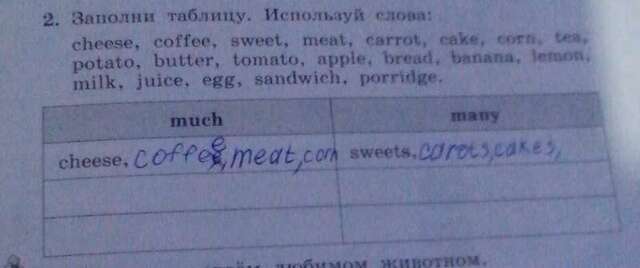 2. Заполни таблицу. Используй слова:
cheese, coffee, sweet, meat, carrot, cake, corn, tea,
potato, butter, tomato, apple, bread, banana, lemon,
milk, juice, egg, sandwich, porridge.
much many
cheese, coffee, meat, corn sweets, carots, cakes,
любимом животном.